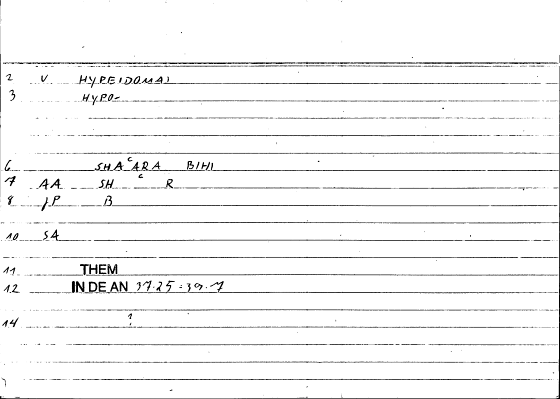 2 V HYPEIDOMAI
3 HYPO-
6 SHAᶜARA BIHI
7 AA SH ᶜ R
8 JP B
10 SA
11 THEM
12 IN DE AN 37.25 = 39.7
14 ?